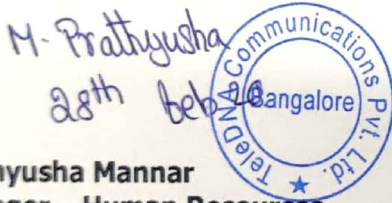 M. Prathyusha
28th Feb 20
TeleDNA Communications Pvt. Ltd.
Bangalore
hyusha Mannar
ager - Human Resources